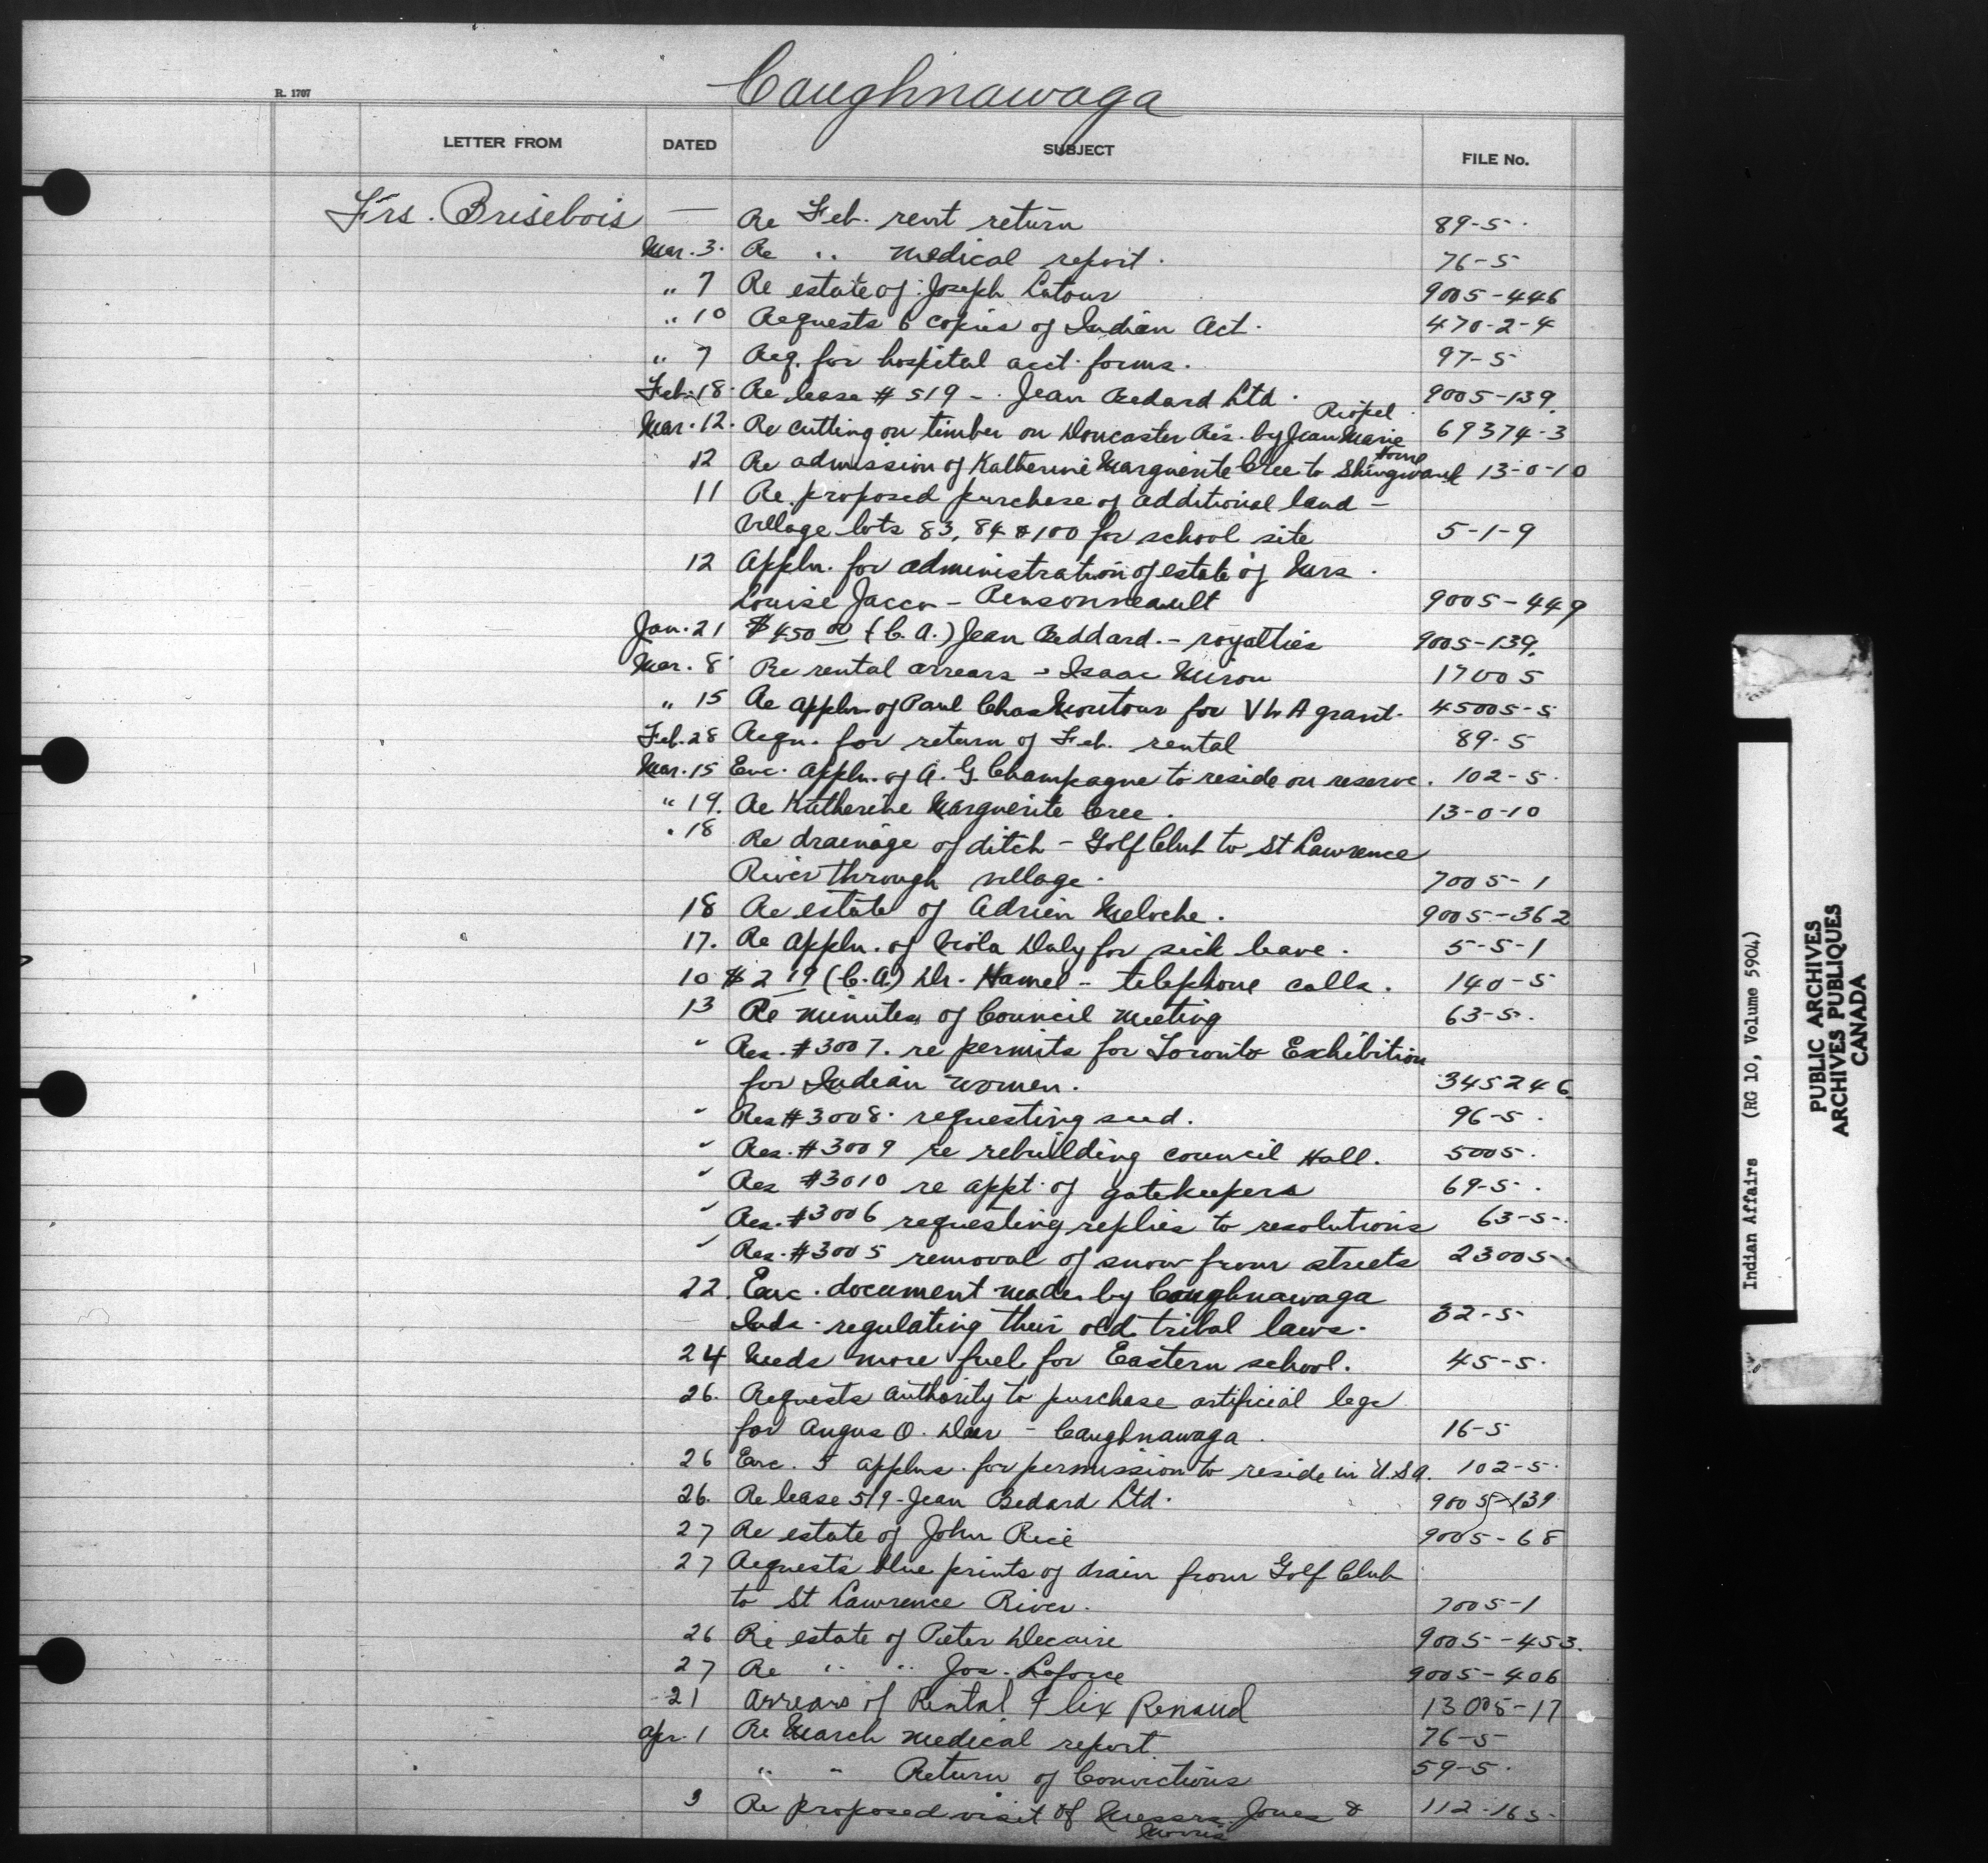 Caughnawaga
R. 1707
LETTER FROM DATED SUBJECT FILE No.
Frs. Brisebois — Re Feb. rent return 89-5
Mar. 3. Re " medical report. 76-5
" 7 Re estate of Joseph Latour 9005-446
" 10 Requests 6 copies of Indian Act. 470-2-4
" 7 Req. for hospital acct. forms. 97-5
Feb. 18. Re lease # 519 - Jean Bedard Ltd. 9005-139.
Mar. 12. Re cutting on timber on Doncaster Res. by Jean Marie Riopel 69374-3
12 Re admission of Katherine Marguerite Cree to Shingwauk Home 13-0-10
11 Re proposed purchase of additional land -
Village lots 83, 84 & 100 for school site 5-1-9
12 Appln. for administration of estate of Mrs.
Louise Jacco - Rensonneault 9005-449
Jan. 21 $450.00 (C.A.) Jean Beddard. - royalties 9005-139.
Mar. 8 Re rental arrears - Isaac Miron 17005
" 15 Re appln. of Paul Chas Montour for VLA grant. 45005-5
Feb. 28 Reqn. for return of Feb. rental 89-5
Mar. 15 Enc. appln. of A. G. Champagne to reside on reserve. 102-5.
" 19. Re Katherine Marguerite Cree. 13-0-10
" 18 Re drainage of ditch - Golf Club to St Lawrence
River through village. 7005-1
18 Re estate of Adrien Meloche. 9005-362
17. Re appln. of Viola Daly for sick leave. 5-5-1
10 $2 19 (C.A.) Dr. Hamel - telephone calls. 140-5
13 Re minutes of Council Meeting 63-5.
" Res. #3007. re permits for Toronto Exhibition
for Indian women. 345246
" Res #3008. requesting seed. 96-5.
" Res. #3009 re rebuilding council Hall. 5005.
" Res #3010 re appt. of gatekeepers 69-5.
" Res. #3006 requesting replies to resolutions 63-5.
" Res. #3005 removal of snow from streets 23005
22 Enc. document made by Caughnawaga
Inds. regulating their old tribal laws. 32-5
24 Needs more fuel for Eastern school. 45-5.
26. Requests authority to purchase artificial legs
for Angus O. Deer - Caughnawaga. 16-5
26 Enc. 5 applns. for permission to reside in U.S.A. 102-5.
26. Re lease 519 - Jean Bedard Ltd. 9005-139
27 Re estate of John Rice 9005-68
27 Requests blue prints of drain from Golf Club
to St Lawrence River. 7005-1
26 Re estate of Peter Decaire 9005-453.
27 Re " " Jos. Laforce 9005-406
21 Arrears of Rental Flix Renaud 13005-17
Apr. 1 Re March medical report. 76-5
" " Return of Convictions 59-5.
3 Re proposed visit of Messrs. Jones & 112-165
Morris
Indian Affairs (RG 10, Volume 5904)
PUBLIC ARCHIVES
ARCHIVES PUBLIQUES
CANADA